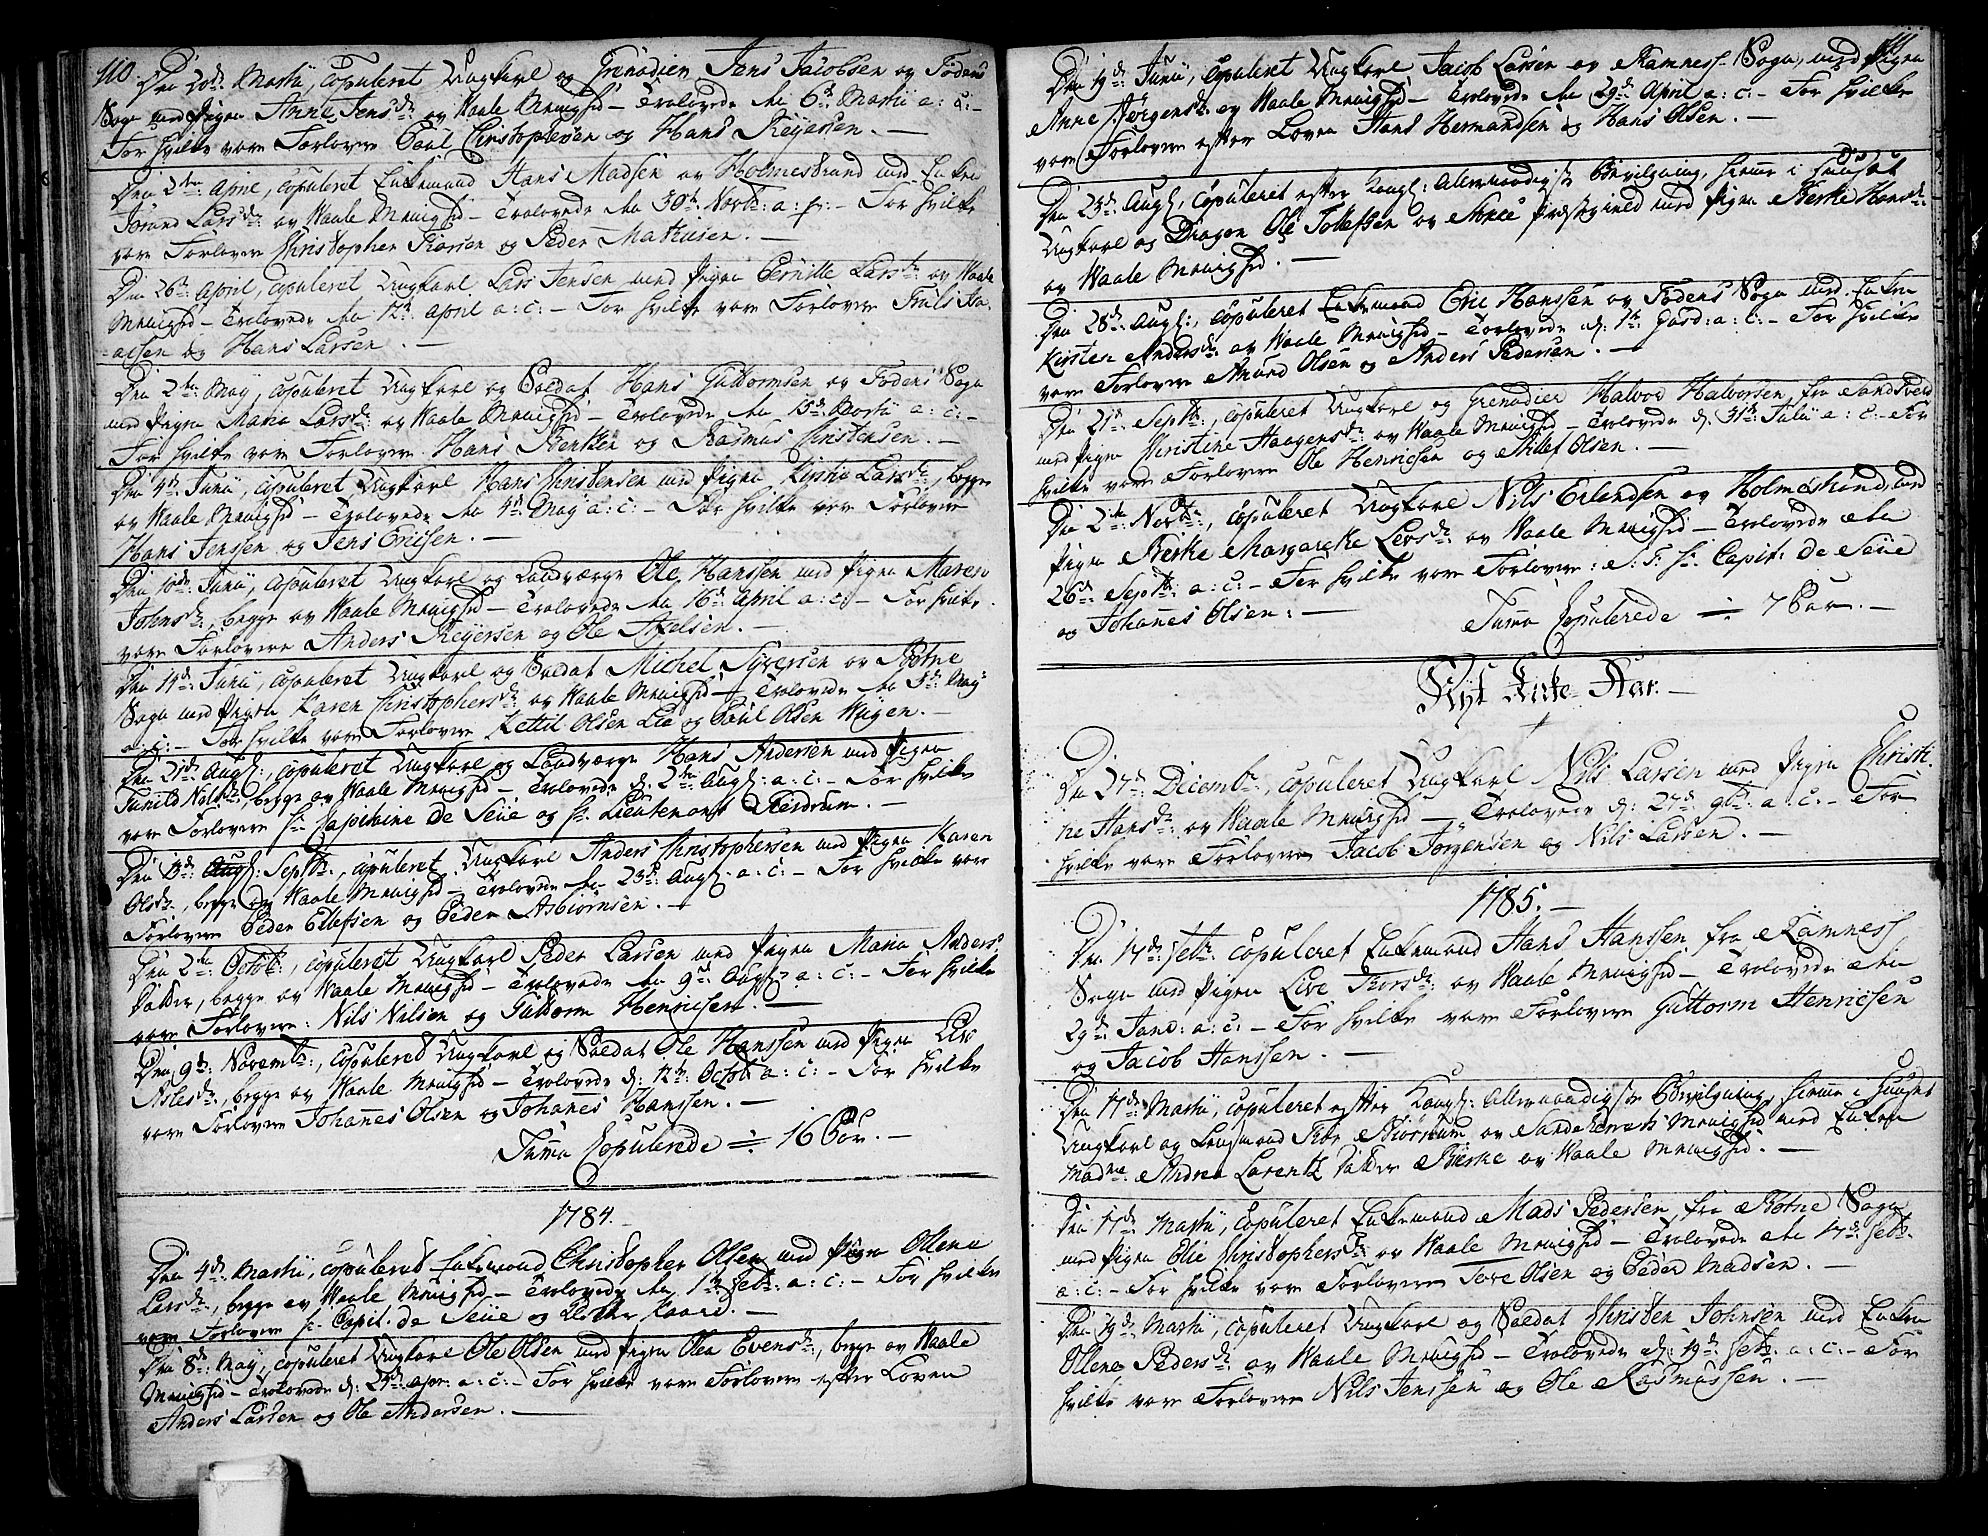 110.
Den 20de Martii, copuleret Ungkarl og Grenadier Jens Jacobsen av Fodens
Sogn med Pigen Anne Jensdr: av Waale Menighed – Trolovede den 6te Martii a: c: –
For hvilke vare Forlovere Poul Christophersen og Hans Reyersen. –
Den 2den April, copuleret Enkemand Hans Madsen av Holmestrand med Enken
Jorand Larsdr: av Waale Menighed – Trolovede den 30te Novbr: a: p: – For hvilke
vare Forlovere Christopher Thorsen og Peder Mathisen. –
Den 26de April, copuleret Ungkarl Lars Jensen med Pigen Pernille Larsdr: av Waale
Menighed – Trolovede den 12te April a: c: – For hvilke vare Forlovere Truls
og Hans Larsen. –
Den 2den May, copuleret Ungkarl og Soldat Hans Guttormsen av Fodens Sogn
med Pigen Maria Larsdr: av Waale Menighed – Trolovede den 15de Martii a: c: –
For hvilke vare Forlovere Hans Bentsen og Rasmus Christensen. –
Den 4de Junii, copuleret Ungkarl Hans Christensen med Pigen Kirstie Larsdr:, begge
av Waale Menighed – Trolovede den 4de May a: c: – For hvilke vare Forlovere
Hans Jenssen og Jens Ericsen. –
Den 10de Junii, copuleret Ungkarl og Landværge Ole Hanssen med Pigen Maren
Johnsdr:, begge av Waale Menighed – Trolovede den 16de April a: c: – For hvilke
vare Forlovere Anders Reyersen og Ole Axelsen. –
Den 14de Junii, copuleret Ungkarl og Soldat Michel Syversen av Botne
Sogn med Pigen Karen Christophersdr: av Waale Menighed – Trolovede den 3de May
a: c: – For hvilke vare Forlovere Kettil Olsen Lie og Poul Olsen Wigen. –
Den 21de Aug:, copuleret Ungkarl og Landværge Hans Andersen med Pigen
Gunild Nilsdr:, begge av Waale Menighed – Trolovede d: 2den Aug: a: c: – For hvilke
vare Forlovere Hr: Capitaine de Seüe og Hr: Lieutenant Tierdrum. –
Den 13de Septbr:, copuleret Ungkarl Anders Christophersen med Pigen Karen
Olsdr:, begge av Waale Menighed – Trolovede den 23de Aug: a: c: – For hvilke vare
Forlovere Peder Ellefsen og Peder Asbiørnsen. –
Den 2den Octobr:, copuleret Ungkarl Peder Larsen med Pigen Maria Anders
Datter, begge av Waale Menighed – Trolovede den 9de Aug: a: c: – For hvilke
vare Forlovere: Nils Nilsen og Guttorm Henricsen. –
Den 9de Novembr:, copuleret Ungkarl og Soldat Ole Hanssen med Pigen Live
Aslesdr:, begge av Waale Menighed – Trolovede d: 12te Octob a: c: – For hvilke
vare Forlovere Johannes Olsen og Johannes Hanssen. –
Suma Copulerede ÷ 16 Par. –
1784.
Den 4de Martii, copuleret Enkemand Christopher Olsen med Pigen Ollena
Larsdr:, begge av Waale Menighed – Trolovede den 1te Febr: a: c: – For hvilke
vare Forlovere Hr: Capit: de Seüe og Kaare. –
Den 8de May, copuleret Ungkarl Ole Olsen med Pigen Olea Evensdr:, begge av Waale
Menighed – Trolovede d: 24de Apr: a: c: – For hvilke vare Forlovere efter Loven
Anders Larsen og Ole Andersen. –
111.
Den 19de Junii, copuleret Ungkarl Jacob Larsen av Ramness Sogn, med Pigen
Anne Jørgensdr: av Waale Menighed – Trolovede den 29de April a: c: – For hvilke
vare Forlovere efter Loven Hans Hermandsen og Hans Olsen. –
Den 23de Aug:, copuleret efter Kongl: Allernaadigste Bevilgning, hiemme i Huuset
Ungkarl og Dragon Ole Tollefsen av Præstegield med Pigen Berthe Hansdr:
av Waale Menighed. –
Den 28de Aug:, copuleret Enkemand Eric Hanssen av Fodens Sogn med Enken
Kirsten Andersdr: av Waale Menighed – Trolovede d: 1te a: c: – For hvilke
vare Forlovere Amund Olsen og Anders Pedersen. –
Den 21de Septbr:, copuleret Ungkarl og Grenadier Halvor Halvorsen fra Sandsverd
med Pigen Christine Haagensdr: av Waale Menighed – Trolovede d: 31te Julii a: c: – For
hvilke vare Forlovere Ole Henricsen og Ellef Olsen. –
Den 2den Novbr:, copuleret Ungkarl Nils Erlandsen av Holmestrand, med
Pigen Berthe Margarethe Leosdr: av Waale Menighed – Trolovede den
26de Septbr: a: c: – For hvilke vare Forlovere: Hr: Capit: de Seüe
og Johannes Olsen: –
Suma Copulerede ÷ 7 Par. –
Nyt Kirke-Aar. –
Den 27de Decembr:, copuleret Ungkarl Nils Larsen med Pigen Christi-
ne Hansdr: av Waale Menighed – Trolovede d: 27de 9br: a: c: – For
hvilke vare Forlovere Jacob Jørgensen og Nils Larsen. –
1785. –
Den 17de Febr: copuleret Enkemand Hans Hanssen fra Ramness
Sogn med Pigen Live Torsdr: av Waale Menighed – Trolovede den
29de Janr: a: c: – For hvilke vare Forlovere Guttorm Henricsen
og Jacob Hanssen. –
Den 17de Martii, copuleret efter Kongl: Allernaadigste Bevilgning, hiemme i Huuset
Ungkarl og Lensmand Biørnum av Sandeherreds Menighed med Enken
Madme: Andrea Lorentz Datter Bierke av Waale Menighed. –
Den 17de Martii, copuleret Enkemand Mads Pedersen fra Botne Sogn
med Pigen Olie Christophersdr: av Waale Menighed – Trolovede den 17de Febr:
a: c: – For hvilke vare Forlovere Tore Olsen og Peder Madsen. –
Den 19de Martii, copuleret Ungkarl og Soldat Christen Johnsen med Enken
Ollene Pedersdr: av Waale Menighed – Trolovede d: 19de Febr: a: c: – For
hvilke vare Forlovere Nils Jenssen og Ole Rasmussen. –